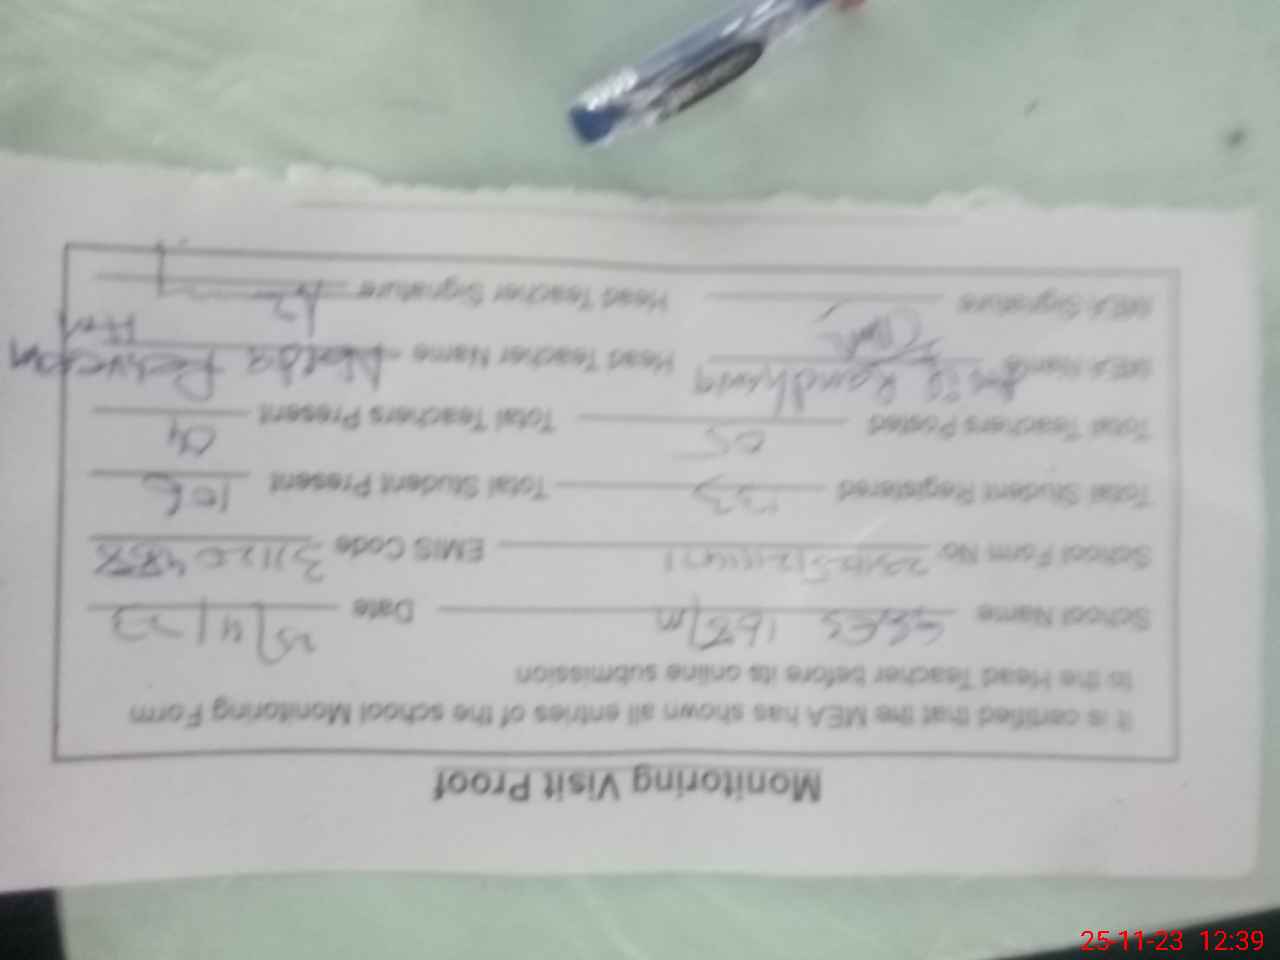 Monitoring Visit Proof
It is certified that the MEA has shown all entries of the school Monitoring Form
to the Head Teacher before its online submission
School Name 168/m Date
School Form No. EMIS Code
Total Student Registered 133 Total Student Present 106
Total Teachers Posted 05 Total Teachers Present 04
MEA Name Randhawa Head Teacher Name Perveen
MEA Signature Head Teacher Signature
25-11-23 12:39